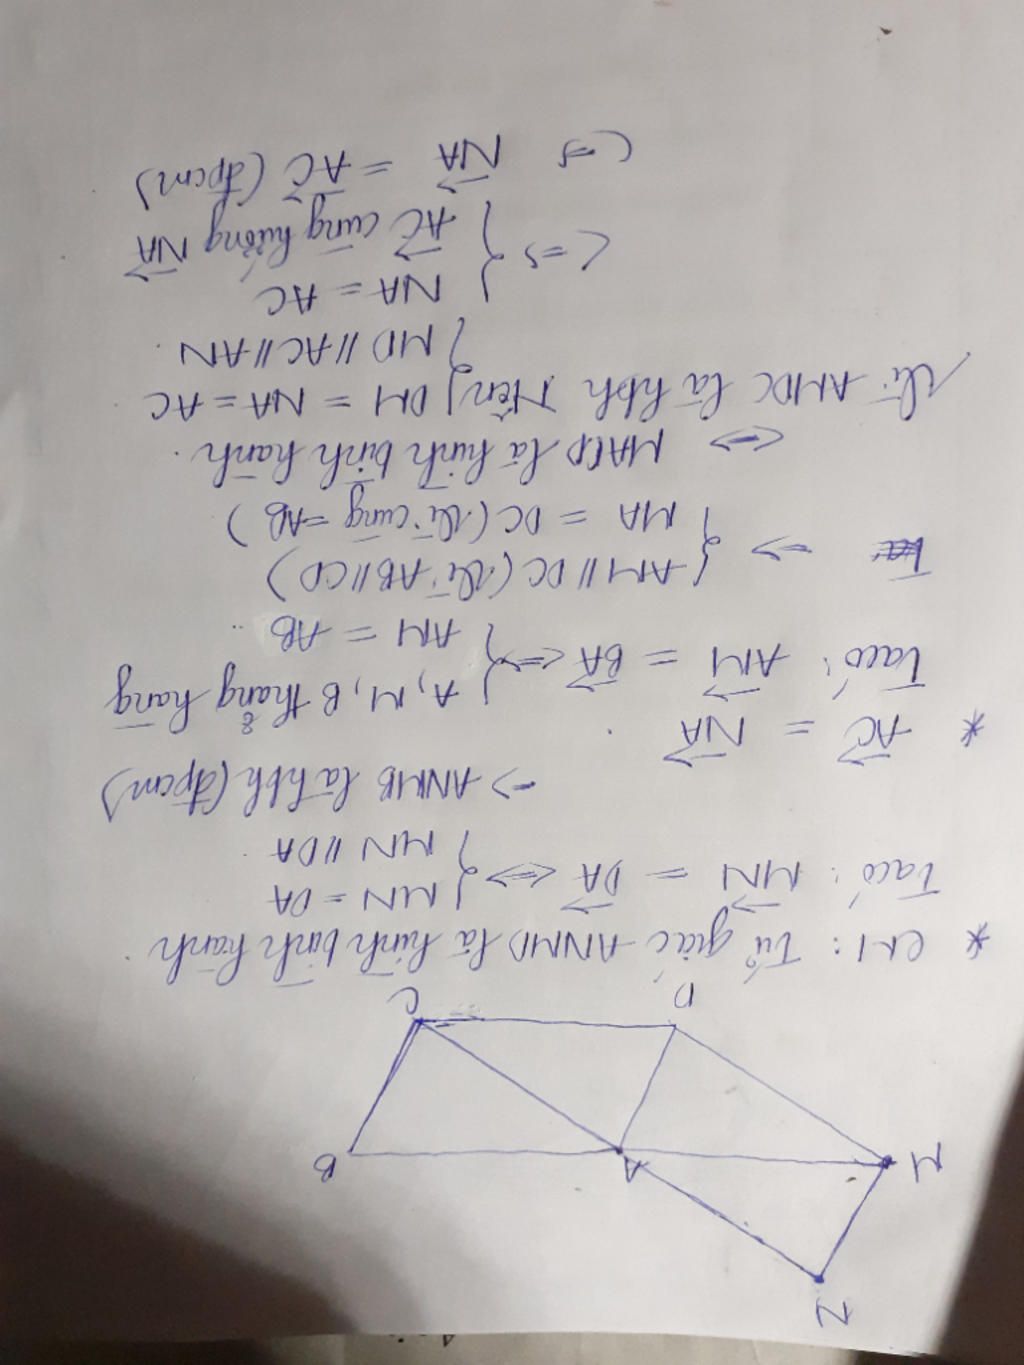 N
M
A
B
D
C
* CM: Tứ giác ANMD là hình bình hành.
Ta có: \overrightarrow{MN} = \overrightarrow{DA} <=> { MN = DA
MN // DA
=> ANMB là hbh (đpcm)
* \overrightarrow{AC} = \overrightarrow{NA}.
Ta có: \overrightarrow{AM} = \overrightarrow{BA} <=> { A, M, B thẳng hàng
AM = AB
=> { AM // DC (Vì AB // CD)
MA = DC (Vì cùng = AB)
<=> MACD là hình bình hành.
Vì AMDC là hbh Nên { DM = NA = AC
MD // AC // AN.
<=> { NA = AC
\overrightarrow{AC} cùng hướng \overrightarrow{NA}
<=> \overrightarrow{NA} = \overrightarrow{AC} (đpcm)